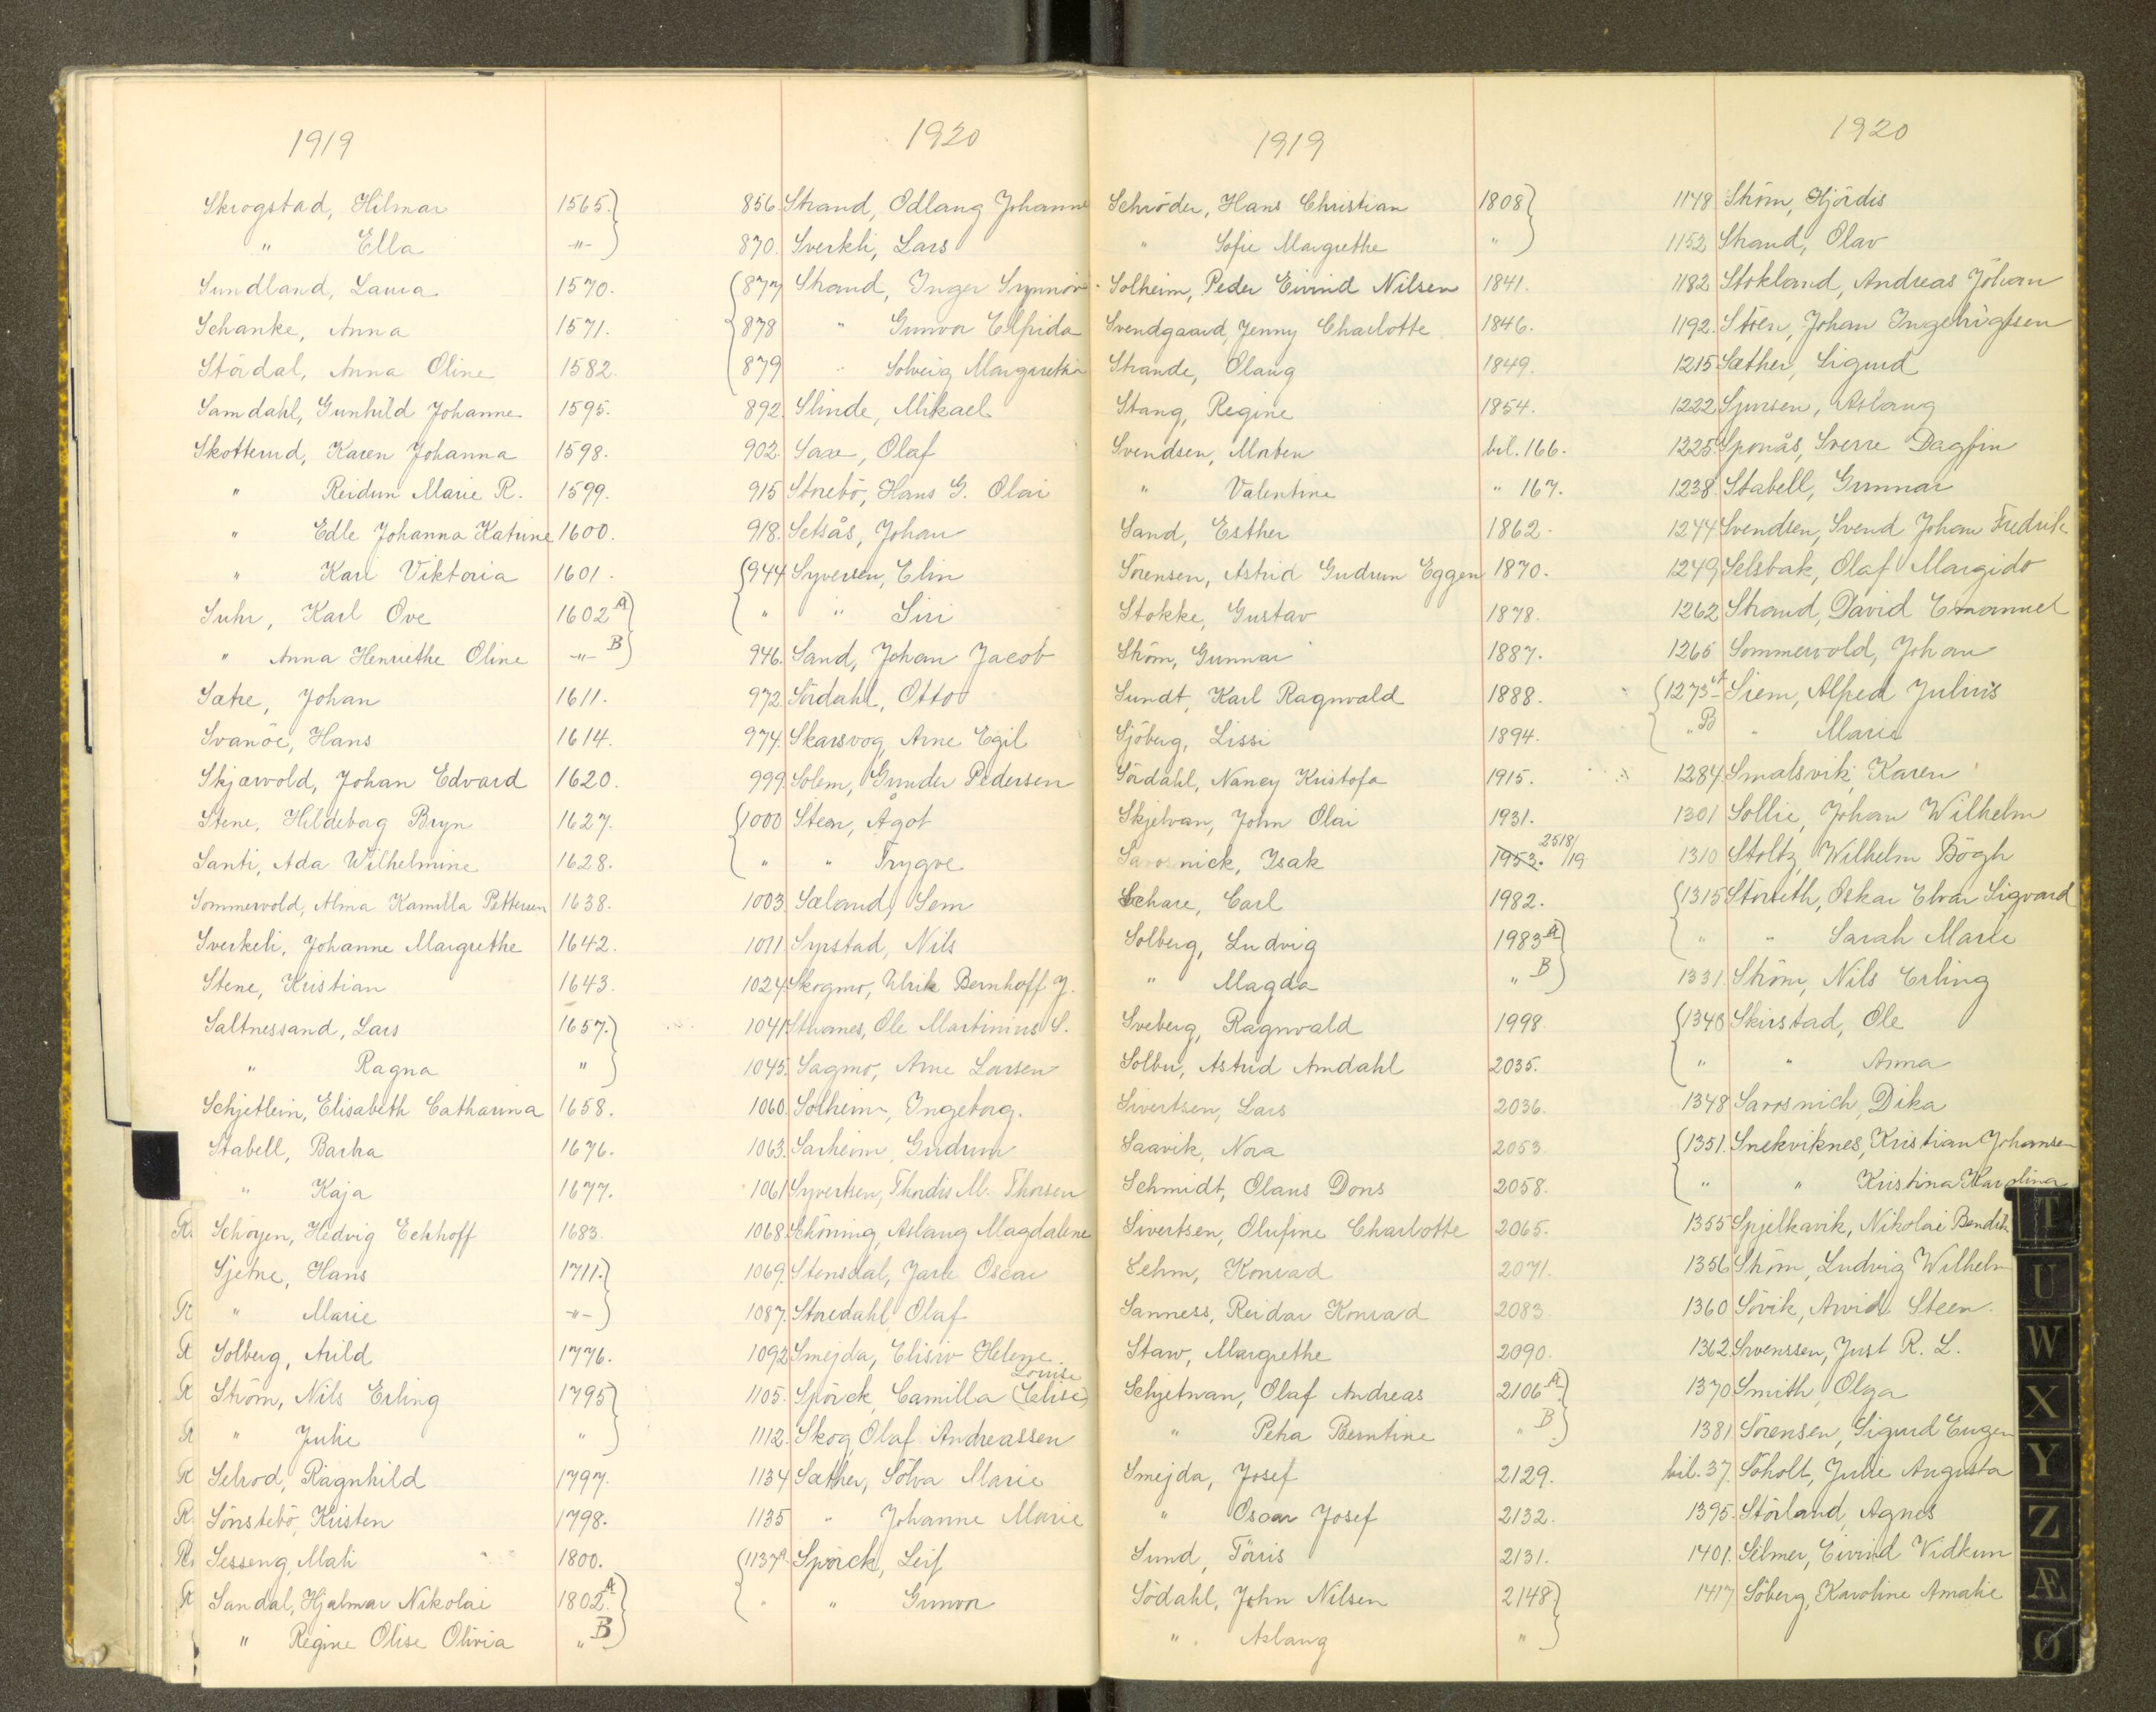 1919
Skrogstad, Hilmar 1565.
" Ella -"-
Sundland, Laura 1570.
Schanke, Anna 1571.
Stördal, Anna Oline 1582.
Samdahl, Gunhild Johanne 1595.
Skotterud, Karen Johanna 1598.
" Reidun Marie R. 1599.
" Edle Johanna Katrine 1600.
" Kari Viktoria 1601.
Suhr, Karl Ove 1602 A
" Anna Henriethe Oline -"- B
Sætre, Johan 1611.
Svanöe, Hans 1614.
Skjærvold, Johan Edvard 1620.
Stene, Hildeborg Bryn 1627.
Santi, Ada Wilhelmine 1628.
Sommervold, Alma Kamilla Pettersen 1638.
Sverkeli, Johanne Margrethe 1642.
Stene, Kristian 1643.
Saltnessand, Lars 1657.
" Ragna "
Schjetlein, Elisabeth Catharina 1658.
Stabell, Barha 1676.
" Kaja 1677.
R. Schöyen, Hedvig Eckhoff 1683.
Sjetne, Hans 1711.
R " Marie -"-
R Solberg, Arild 1776.
R Ström, Nils Erling 1795
R " Julie "
R Selrod, Ragnhild 1797.
R Sönstebö, Kristen 1798.
R. Sesseng, Mali 1800.
R Sandal, Hjalmar Nikolai 1802. A
" Regine Olise Olivia " B
1920
856. Strand, Odlaug Johanne
870. Sverkli, Lars
877 Strand, Inger Synnöve
878 " Gunvor Elfrida
879 " Solveig Margretha
892. Slinde, Mikael
902. Saxe, Olaf
915 Storebö, Hans G. Olai
918. Setsås, Johan
944 Syversen, Elin
" " Siri
946. Sand, Johan Jacob
972. Sördahl, Otto
974. Skarsvog, Arne Egil
999. Solem, Gunder Pedersen
1000 Steen, Ågot
" " Trygve
1003. Sæland, Sem
1011. Syrstad, Nils
1024. Skogmo, Ulrik Bernhoff J.
1041. Ole Martinius S.
1045. Sagmo, Arne Larsen
1060. Solheim, Ingeborg.
1063. Sarheim, Gudrun
1061 Syvertsen, Thordis M. Thorsen
1068. Schöning, Aslaug Magdalene
1069. Stensdal, Jarle Oscar
1087. Storedahl, Olaf
1092 Smejda, Elisiv Helene
Louise
1105. Spörck, Camilla (Elise)
1112. Skog, Olaf Andreassen
1134 Sæther, Solva Marie
1135 " Johanne Marie
1137 A Spörck, Leif
" " Gunvor
1919
Schröder, Hans Christian 1808
" Sofie Margrethe "
Solheim, Peder Eivind Nilsen 1841.
Svendgaard, Jenny Charlotte 1846.
Strande, Olaug 1849.
Stang, Regine 1854.
Svendsen, Morten bil. 166.
" Valentine " 167.
Sand, Esther 1862.
Sörensen, Astrid Gudrun Eggen 1870.
Stokke, Gustav 1878.
Ström, Gunnar 1887.
Sundt, Karl Ragnvald 1888.
Sjöberg, Lissi 1894.
Sördahl, Nancy Kristofa 1915.
Skjelvan, John Olai 1931.
Savosnick, Isak 1953. 2518/19
Schare, Carl 1982.
Solberg, Ludvig 1983 A
" Magda " B
Sveberg, Ragnvald 1998
Solbu, Astrid Amdahl 2035.
Sivertsen, Lars 2036.
Saavik, Nora 2053
Schmidt, Olaus Dons 2058.
Sivertsen, Olufine Charlotte 2065.
Sehm, Konrad 2071.
Sanness, Reidar Konrad 2083.
Staw, Margrethe 2090.
Schjetnan, Olaf Andreas 2106 A
" Petra Berntine " B
Smejda, Josef 2129.
" Oscar Josef 2132.
Sund, Törris 2131.
Södahl, John Nilsen 2148
" Aslaug "
1920
1148 Ström, Hjördis
1152 Strand, Olav
1182 Stokland, Andreas Johan
1192. Stöen, Johan Ingebrigtsen
1215 Sæther, Sigurd
1222 Sjursen, Aslaug
1225 Sponås, Sverre Dagfin
1238. Stabell, Gunnar
1244 Svendsen, Svend Johan Fredrik
1249 Selsbak, Olaf Margido
1262 Strand, David Emanuel
1265 Sommervold, Johan
1273 A Siem, Alfred Julius
" B " Marie
1284. Smalsvik, Karen
1301 Sollie, Johan Wilhelm
1310 Stoltz, Wilhelm Bögh
1315 Oskar Elvar Sigvard
" " Sarah Marie
1331. Ström, Nils Erling
1346 Skirstad, Ole
" " Anna
1348 Savosnich, Dika
1351. Snekviknes, Kristian Johansen
" " Kristina Karolina
1355 Spjelkavik, Nikolai Bendik
1356 Ström, Ludvig Wilhelm
1360 Sövik, Arvid Steen.
1362 Svenssen, Just R. L.
1370 Smith, Olga
1381 Sörensen, Sigurd Eugen
bil. 37. Söholt, Julie Augusta
1395. Störland, Agnes
1401. Silmer, Eivind Vidkun
1417 Söberg, Karoline Amalie
T
U
W
X
Y
Z
Æ
Ø